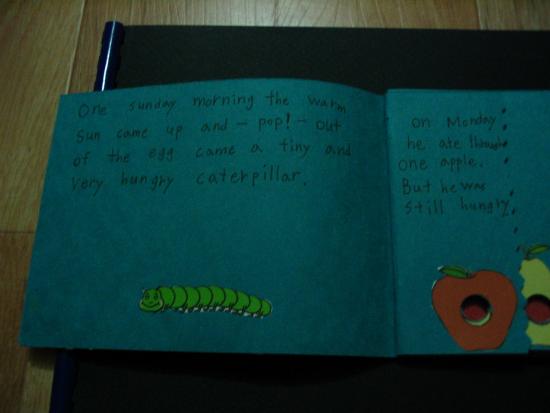 One sunday morning the warm
sun came up and - pop! - out
of the egg came a tiny and
very hungry caterpillar.
on Monday
he ate through
one apple.
But he was
still hungry.